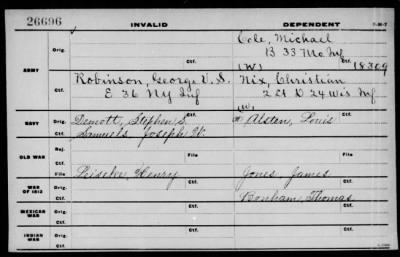 26696
INVALID
DEPENDENT
Cole, Michael
Orig.
B 33 Mo Inf
ARMY
(W)
Ctf.
18309
Robinson, George V. S.
Nix, Christian
Ctf.
E 36 NY Inf
2 Lt D 24 Wis Inf
(W)
NAVY
Orig.
Demott, Stephen S.
Alsten, Louis
Ctf.
Samuels, Joseph W.
Rej.
Ctf.
Ctf.
OLD WAR
File
File
WAR OF 1812
Orig.
Leischer, Henry
Jones, James
Ctf.
Bonham, Thomas
MEXICAN WAR
Orig.
Ctf.
INDIAN WAR
Orig.
Ctf.